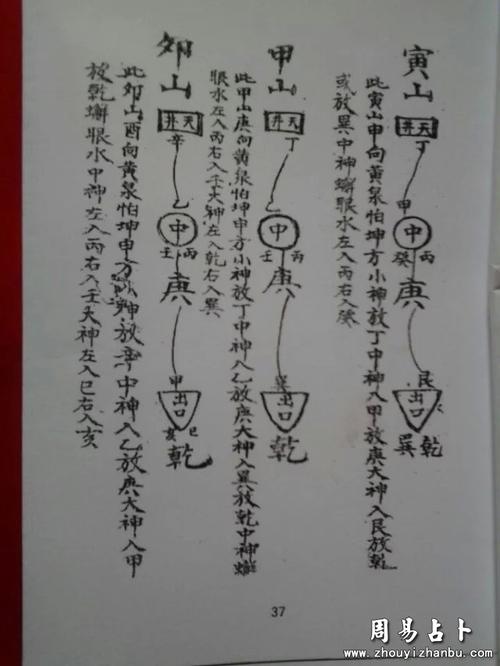 寅山
天井
丁
甲
中
癸 丙
庚
艮
出口
巽 乾
此寅山申向黄泉怕坤方小神放丁中神入甲放庚大神入艮放乾
或放巽中神眼水左入丙右入癸
甲山
天井
丁
乙
中
壬 丙
庚
巽
出口
乾
此甲山庚向黄泉怕坤申方小神放丁中神入乙放庚大神入巽放乾中神
眼水左入丙右入壬大神左入乾右入巽
卯山
天井
辛
乙
中
壬 丙
庚
甲
出口
亥 巳
乾
此卯山酉向黄泉怕坤申方神放辛中神入乙放庚大神入甲
放乾眼水中神左入丙右入壬大神左入巳右入亥
37
周易占卜
www.zhouyizhanbu.com